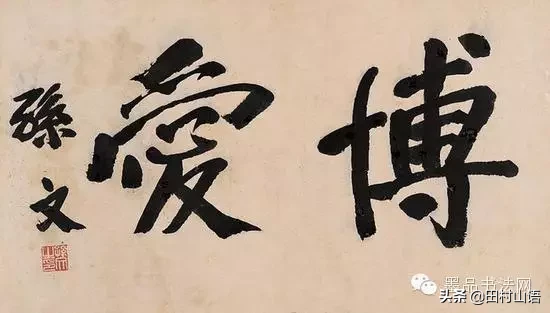 博愛
孫文
墨品书法网
头条@田村山语